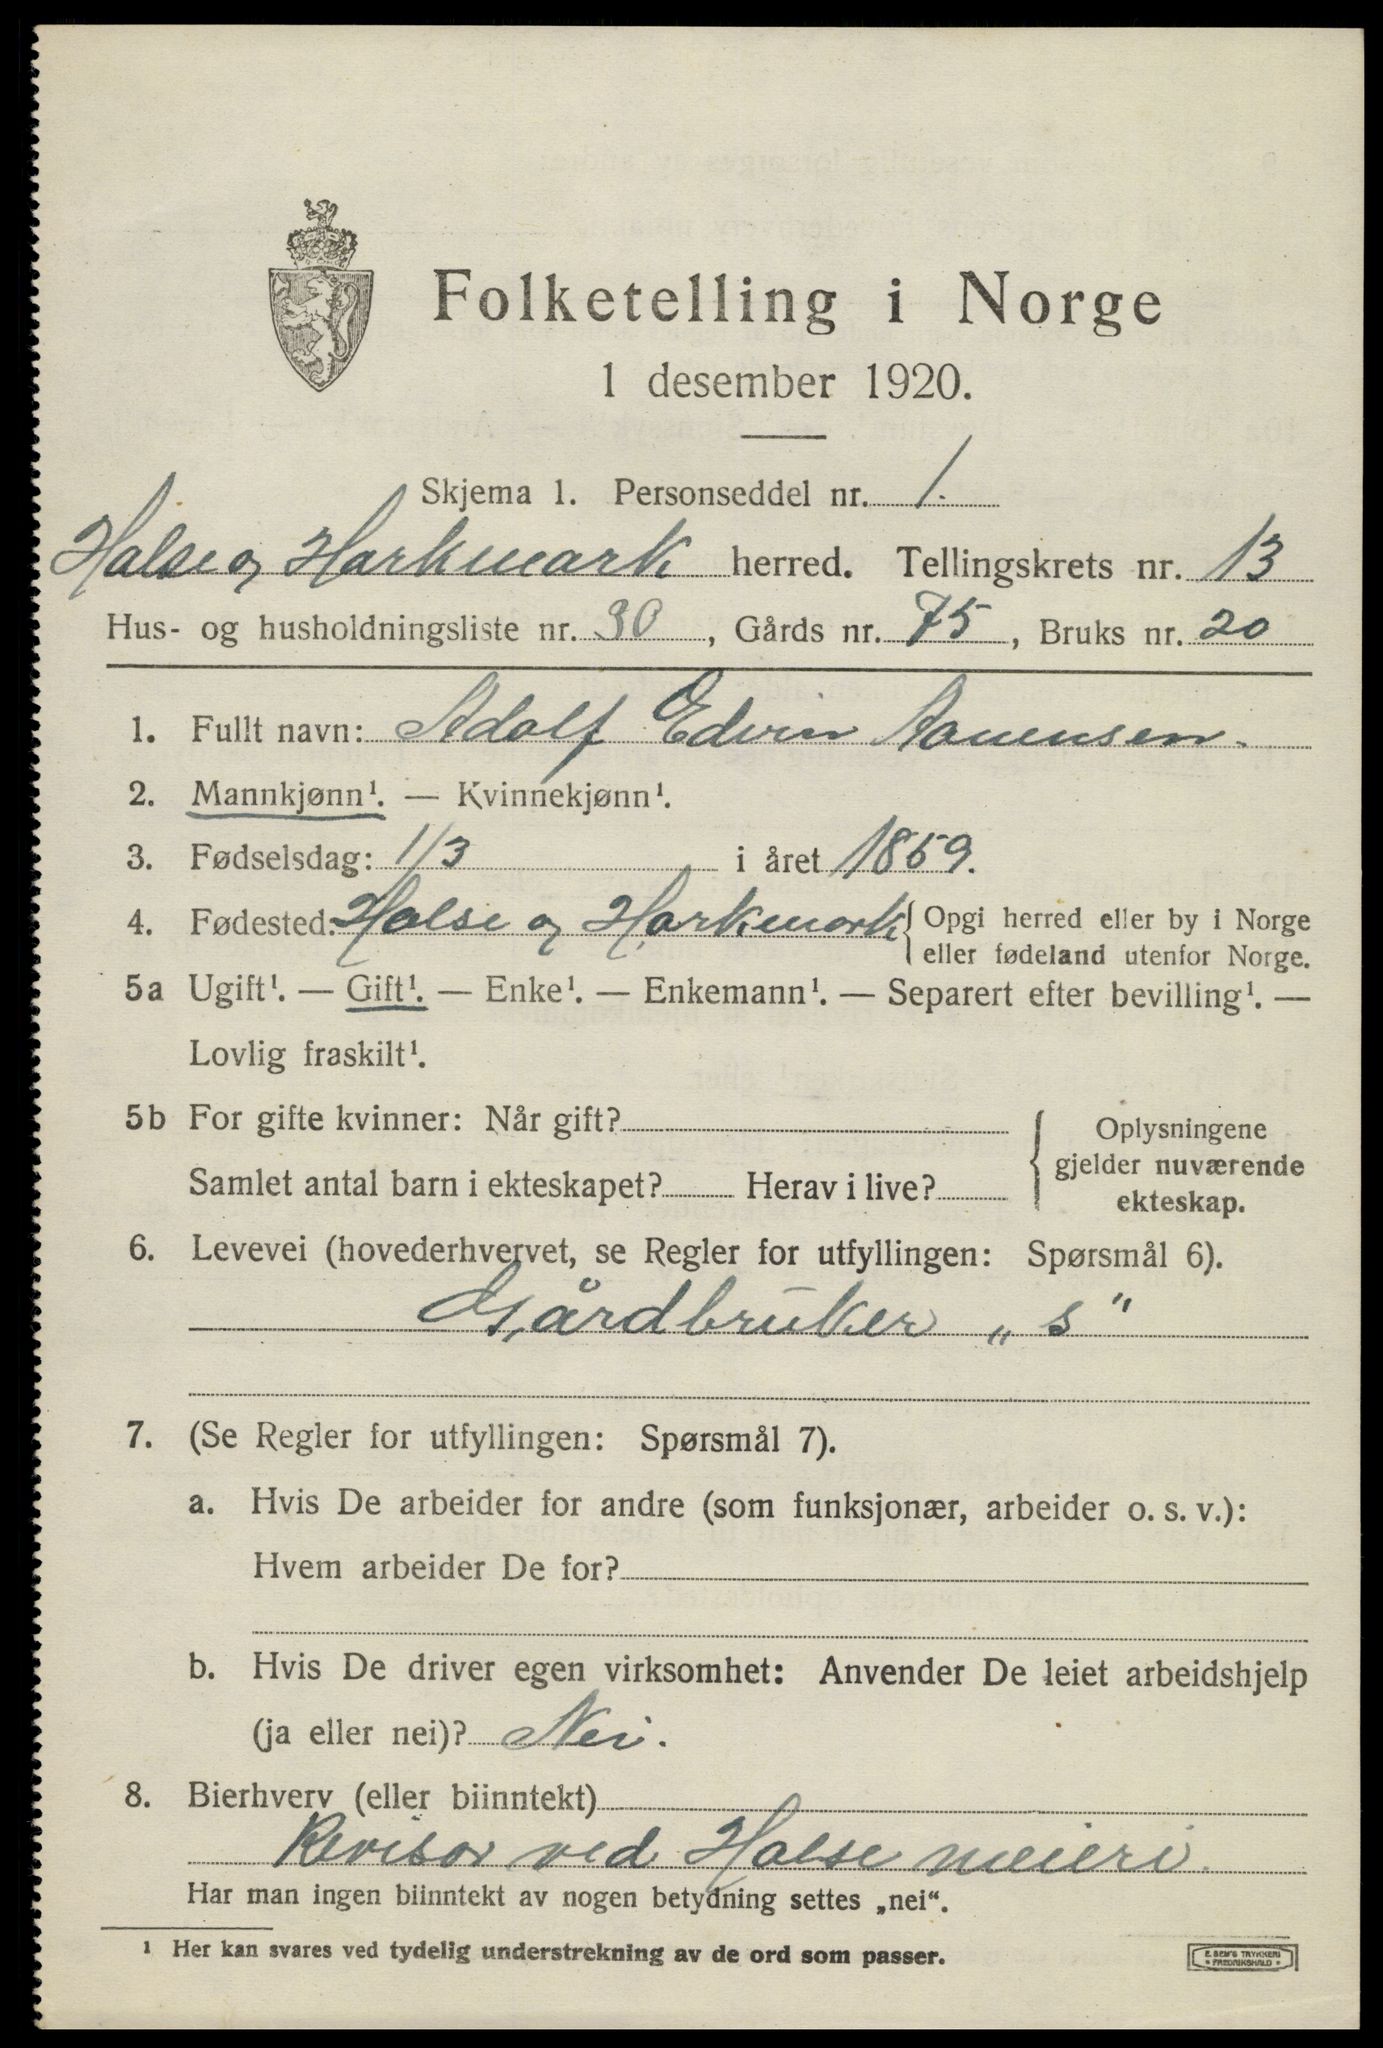 Folketelling i Norge
1 desember 1920.
Skjema 1. Personseddel nr. 1.
Halse og Harkmark herred. Tellingskrets nr. 13
Hus- og husholdningsliste nr. 30, Gårds nr. 75, Bruks nr. 20
1. Fullt navn: Adolf Edvin Aanensen.
2. Mannkjønn¹. — Kvinnekjønn¹.
3. Fødselsdag: 1/3 i året 1859.
4. Fødested: Halse og Harkmark { Opgi herred eller by i Norge
eller fødeland utenfor Norge.
5a Ugift¹. — Gift¹. — Enke¹. — Enkemann¹. — Separert efter bevilling¹. —
Lovlig fraskilt¹.
5b For gifte kvinner: Når gift?
Samlet antal barn i ekteskapet? Herav i live?
Oplysningene
gjelder nuværende
ekteskap.
6. Levevei (hovederhvervet, se Regler for utfyllingen: Spørsmål 6).
Gårdbruker „s"
7. (Se Regler for utfyllingen: Spørsmål 7).
a. Hvis De arbeider for andre (som funksjonær, arbeider o. s. v.):
Hvem arbeider De for?
b. Hvis De driver egen virksomhet: Anvender De leiet arbeidshjelp
(ja eller nei)? Nei.
8. Bierhverv (eller biinntekt)
Revisor ved Halse meieri.
Har man ingen biinntekt av nogen betydning settes „nei“.
¹ Her kan svares ved tydelig understrekning av de ord som passer.
E. SEM'S TRYKKERI
* FREDRIKSHALD *